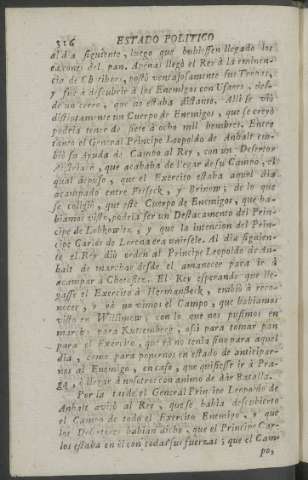 316 ESTADO POLITICO
al dia siguiente, luego que huviessen llegado los
carros del pan. Apenas llegò el Rey à la eminen-
cia de Chotiborz, postò ventajosamente sus Tropas,
y fuè à descubrir à los Enemigos con Usares, des-
de un cerro, que no estaba distante. Allì se viò
distintamente un Cuerpo de Enemigos, que se creyò
podria tener de siete à ocho mil hombres. Entre
tanto el General Principe Leopoldo de Anhalt em-
biò su Ayuda de Campo al Rey, con un Desertor
Austriaco, que acababa de llegar de su Campo, el
qual depuso, que el Exercito estaba aquel dia
acampado entre y ; de lo que
se coligiò, que este Cuerpo de Enemigos, que ha-
biamos visto, podria ser un Destacamento del Prin-
cipe de Lobkowitz, y que la intencion del Prin-
cipe Carlos de Lorena era unirsele. Al dia siguien-
te el Rey diò orden al Principe Leopoldo de An-
halt de marchar desde el amanecer para ir à
acampar à . El Rey esperando que lle-
gasse el Exercito à , embiò à reco-
nocer, y yà no vimos el Campo, que habiamos
visto en , con lo que nos pusimos en
marcha para Kuttemberg, assi para tomar pan
para el Exercito, que yà no tenia sino para aquel
dia, como para ponernos en estado de anticipar-
nos al Enemigo, en caso, que quisiesse ir à Pra-
ga, ò llegar à nosotros con animo de dàr Batalla.
Por la tarde el General Principe Leopoldo de
Anhalt avisò al Rey, que se habia descubierto
el Campo de todo el Exercito Enemigo, y que
los Desertores habian dicho, que el Principe Car-
los estaba en èl con todas sus fuerzas; que el Cam-
po,